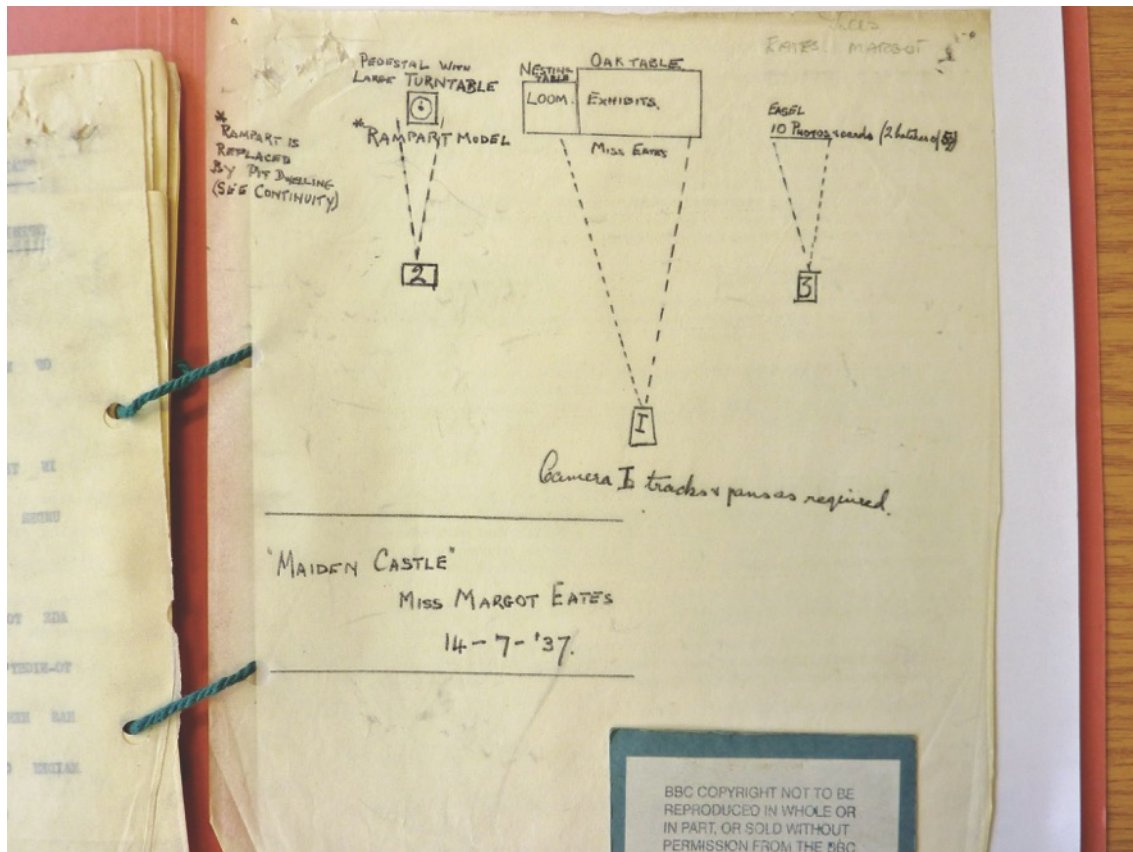 EATES MARGOT
PEDESTAL WITH
LARGE TURNTABLE
* RAMPART MODEL
* RAMPART IS
REPLACED
BY PIT DWELLING
(SEE CONTINUITY)
NESTING
TABLE
LOOM.
OAK TABLE
EXHIBITS.
MISS EATES
EASEL
10 PHOTOS & cards (2 batches of 5)
2
3
I
Camera I tracks & pans as required.
"MAIDEN CASTLE"
MISS MARGOT EATES
14-7-'37.
BBC COPYRIGHT NOT TO BE
REPRODUCED IN WHOLE OR
IN PART, OR SOLD WITHOUT
PERMISSION FROM THE BBC